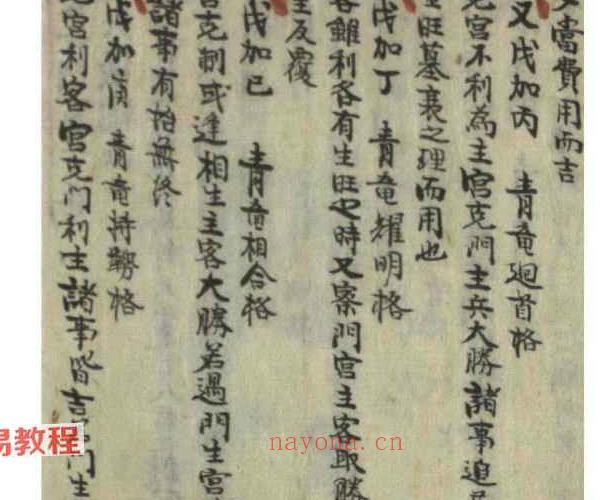 當費用而吉
又戊加丙 青竜廻首格
宮不利為主宮克門主兵大勝諸事迫
旺墓衰之理而用也
戊加丁 青竜耀明格
雖利各有生旺之時又案門宮主客取勝
反覆
戊加己 青竜相合格
克制或逢相生主客大勝若過門生宮
諸事有始無終
戊加庚 青竜持勢格
宮利客宮克門利主諸事皆吉 門生
易教程
nayona.cn